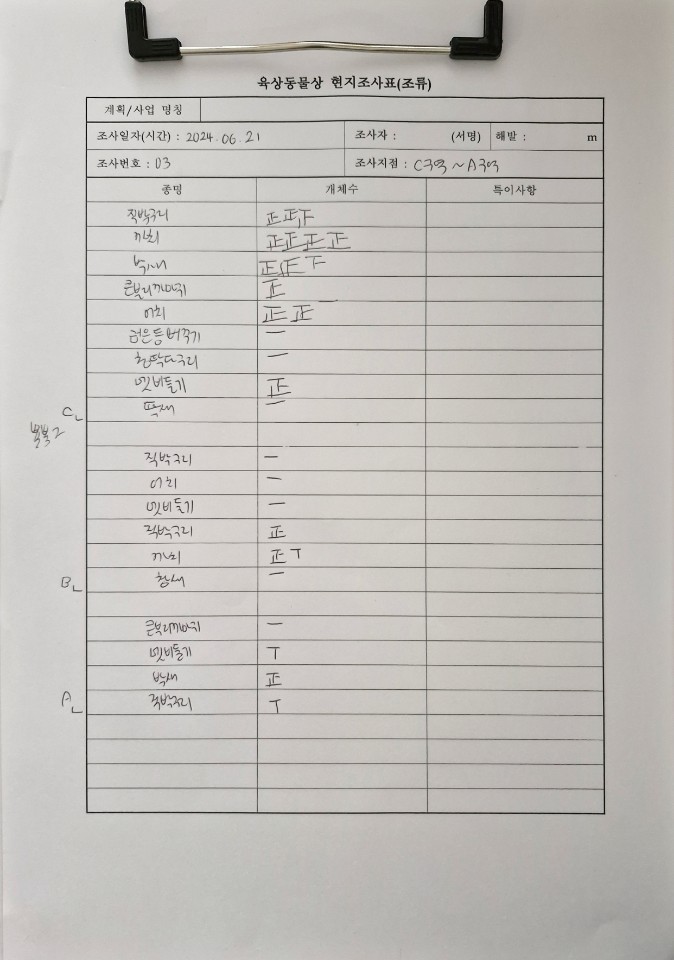 육상동물상 현지조사표(조류)
계획/사업 명칭
조사일자(시간) : 2024.06.21 조사자 : (서명) 해발 : m
조사번호 : 03 조사지점 : C구역 ~ A구역
종명 개체수 특이사항
직박구리 正 正 下
까치 正 正 正 正
박새 正 正 下
큰부리까마귀 正
어치 正 正 一
검은등뻐꾸기 一
청딱다구리 一
멧비둘기 正
딱새 一
C
직박구리 一
어치 一
멧비둘기 一
직박구리 正
까치 正 T
참새 一
B
큰부리까마귀 一
멧비둘기 T
박새 正
직박구리 T
A